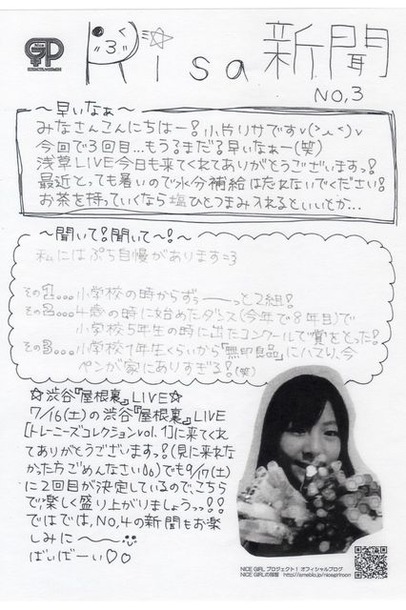 Nice GP
Risa新聞
NO,3
～早いなぁ～
みなさんこんにちはー！小片リサですv(>ᴗ<)v
今回で3回目…もうまだ？早いなぁー(笑)
浅草LIVE今日も来てくれてありがとうございますっ！
最近とっても暑いので水分補給は忘れないでください！
お茶を持っていくなら塩ひとつまみ入れるといいとか…
～聞いて！聞いて～！～
私にはぷち自慢があります=3
その1…小学校の時からずぅーーっと2組！
その2…4歳の時に始めたダンス(今年で8年目)で
小学校5年生の時に出たコンクールで賞をとった！
その3…小学校1年生くらいから『無印良品』にハマり、今
ペンが家にありすぎる！(笑)
☆渋谷『屋根裏』LIVE☆
7/16(土)の渋谷『屋根裏』LIVE
[トレーニーズコレクションvol.1]に来てくれ
てありがとうございますっ！(見に来れな
かった方ごめんなさい)でも9/17(土)
に2回目が決定しているので、こちら
で楽しく盛り上がりましょうっっ！！
ではでは、NO,4の新聞もお楽
しみに～～
ばいばーい♡♡
NICE GIRL プロジェクト！オフィシャルブログ
NICE GIRLの部屋 http://ameblo.jp/nicegirlnoon